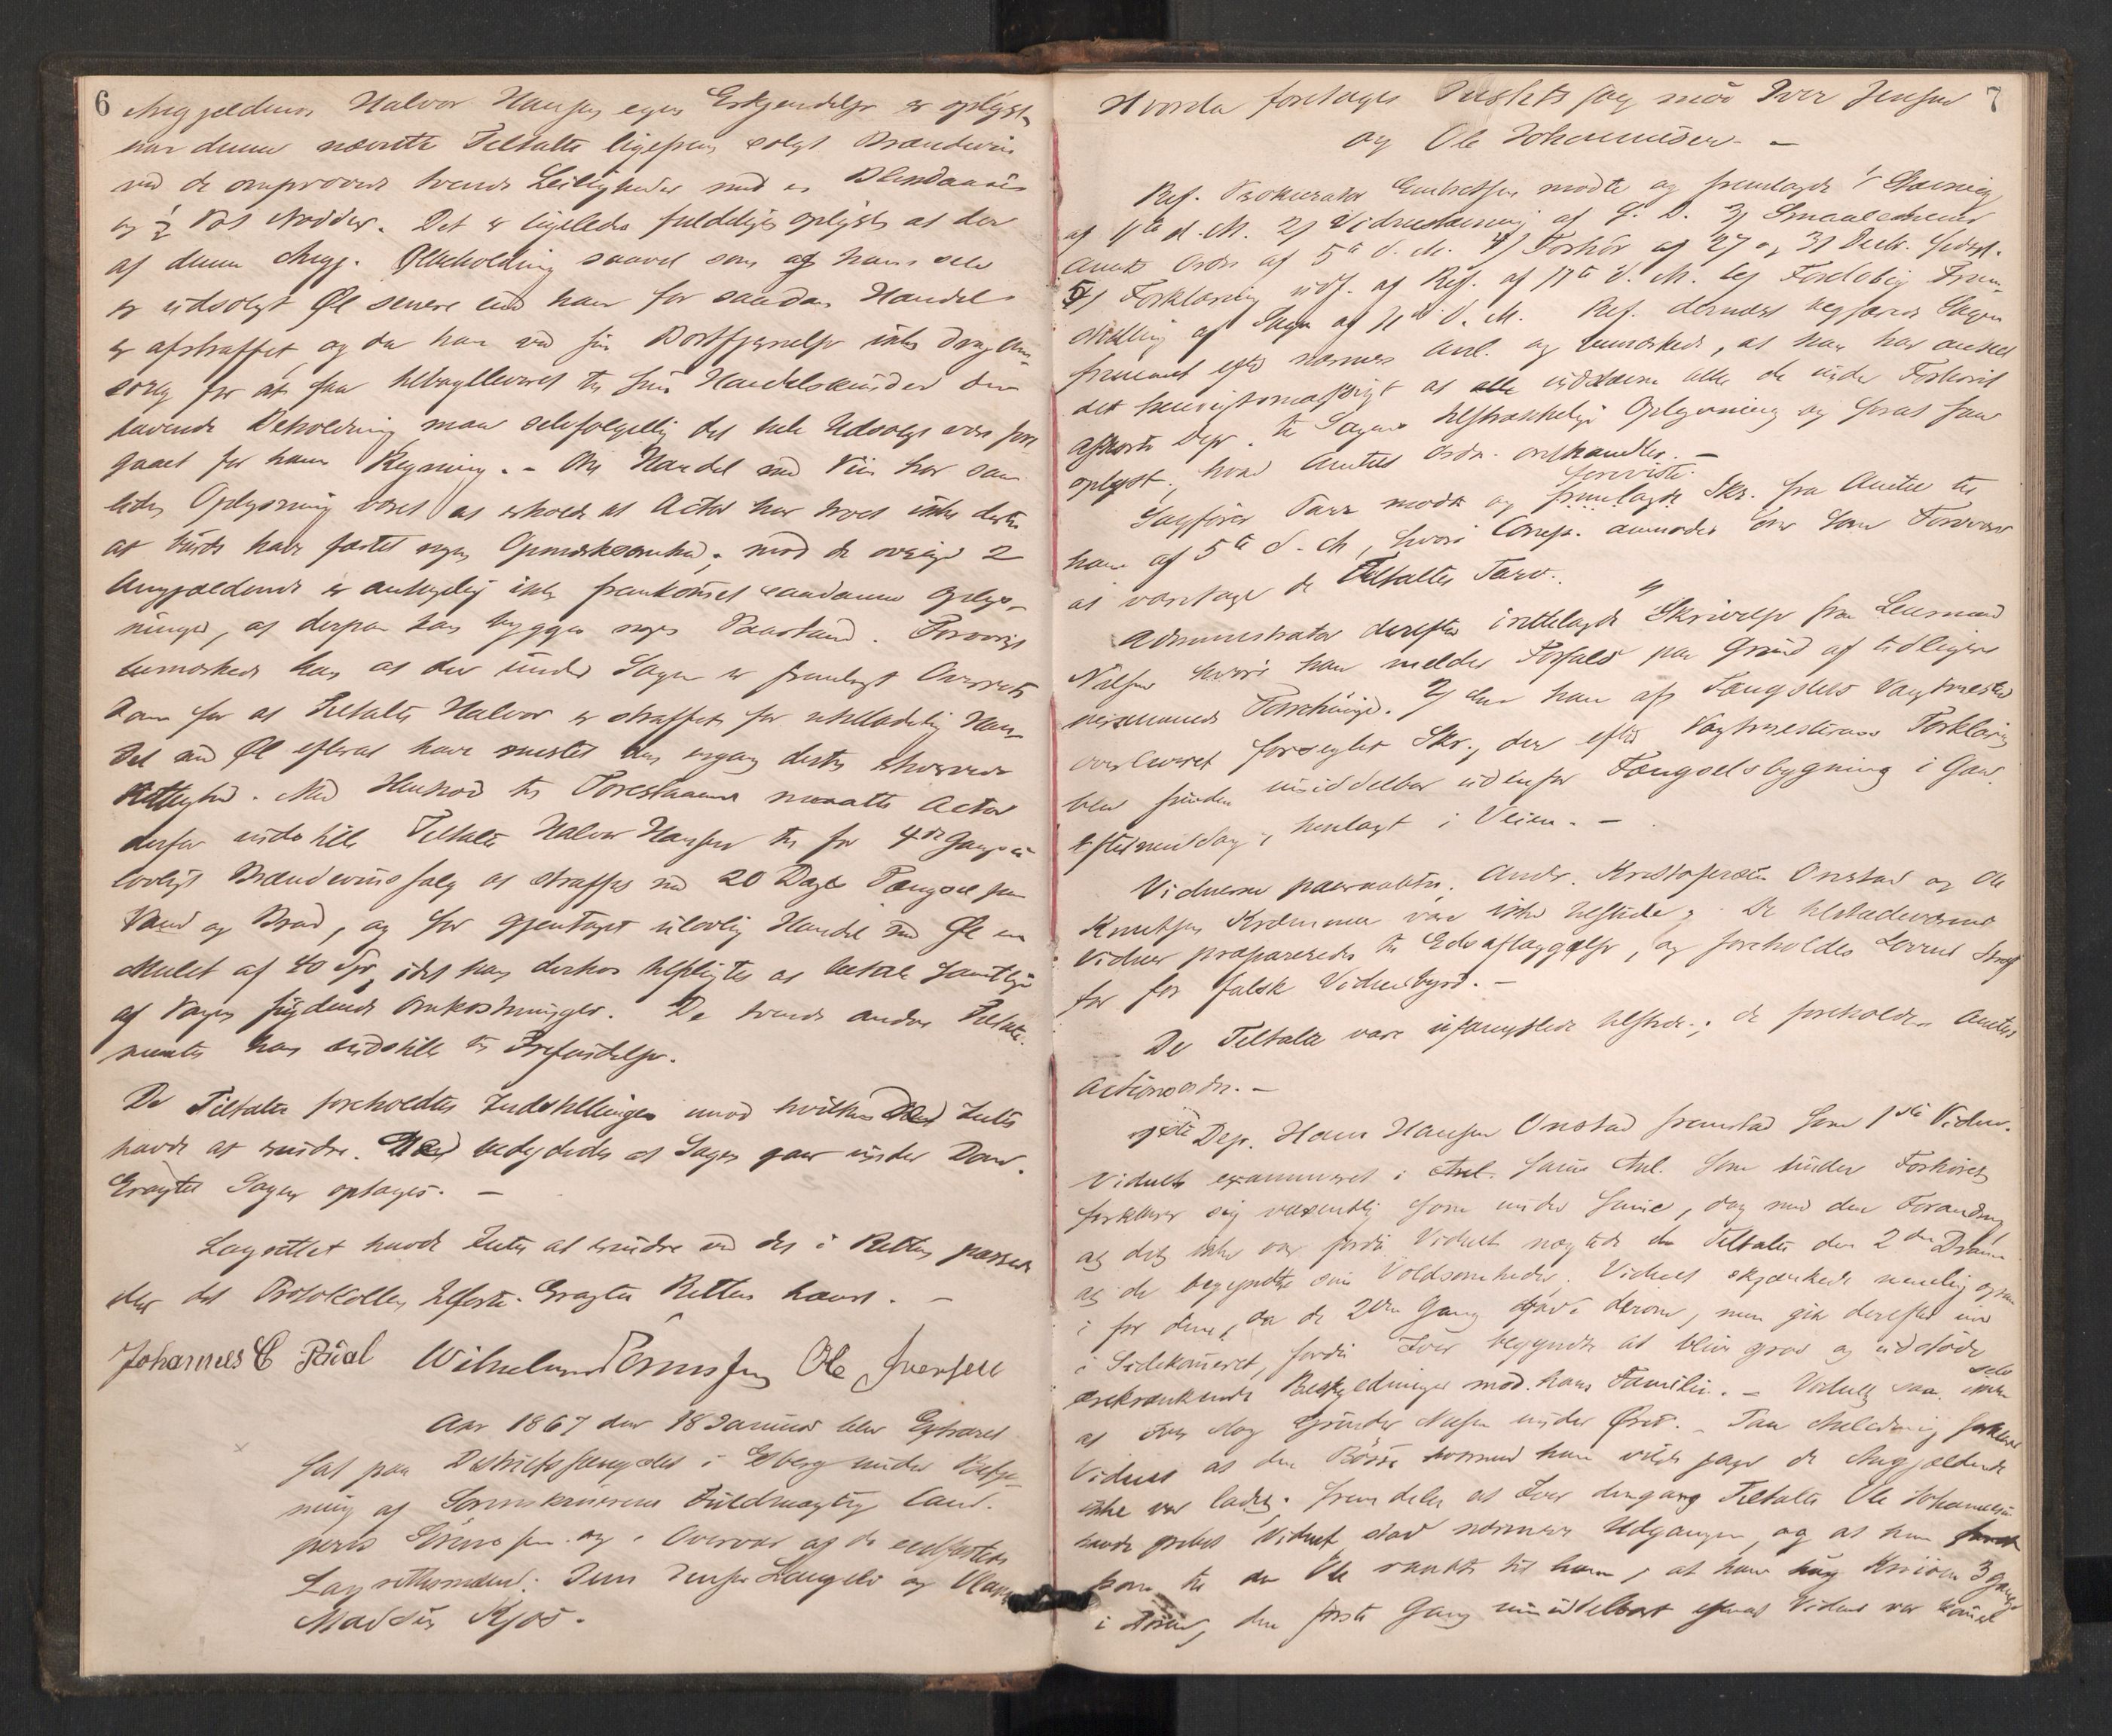 6
Angjældende Halvor Hansens egen Erkjendelse er oplyst,
har denne nævnte Tiltalte ligesom solgt Brændeviin
ved de omprovede tvende Leiligheder med en
og ½ Pot Nodder. Det er ligeledes fuldeligen oplyst at der
af denne Angj. Ølbeholdning saavel som af ham selv
er udsolgt Øl senere end han for saadan Handel
er afstraffet, og da han ved sin Bortfjernelse intet drog Om-
sorg for at faa tilbageleveret til sine Handelskunder den
havende Beholdning maa selvfølgelig det hele Udsalg være fore-
gaaet for hans Regning. - Om Handel med Viin har saa
liden Oplysning været at erholde at Actor har troet ikke dertil
at burde have fæstet nogen Opmærksomhed; mod de øvrige 2
Angjældende er antagelig ikke fremkommet saadanne Oplys-
ninger, at derpaa kan bygges nogen Paastand. Forøvrigt
bemærkede han at der under Sagen er fremlagt Overrets
Dom for at Tiltalte Halvor er straffet for utilladelig Han-
del med Øl efterat have mistet den engang dertil erhvervede
Rettighed. Med Henhold til Forestaaende maatte Actor
derfor indstille Tiltalte Halvor Hansen til for 4de Gang u-
lovligt Brændeviinssalg at straffes med 20 Dages Fængsel paa
Vand og Brød, og for gjentaget ulovlig Handel med Øl en
Mulct af 40 Spd, idet han derhos tilpligtes at betale samtlige
af Sagen flydende Omkostninger. De tvende andre Tiltalte
maatte han indstille til Frifindelse.
De Tiltalte foreholdtes Indstillingen mod hvilken Intet
havde at erindre. betydedes at Sagen gaar under Dom.
Eragtet Sagen optages. -
Lagrettet havde Intet at erindre ved det i Retten passerede
eller det Protokollen Tilførte. Eragtet Retten hævet. -
Johannes C Ole Iversen
Aar 1867 den 18 Januar blev Extraret
sat paa Districtsfængslet i Eberg under Betje-
ning af Sorenskriverens Fuldmægtig Cand.
juris og i Overvær af de eedfæstede
Lagrettesmænd: Jens Jensen Langeli og
Madsen Kjos.
7
Hvorda foretoges Justits Sag mod Iver Jensen
og Ole Johannesen. -
Ref. Prokurator mødte og fremlagde 1) Stævning
af 4de d. M. 2) Vidnestævning af S. D. 3) Smaalehnenes
Amts Ordre af 5te d. M. 4) Forhør af 27 og 31 Decbr. sidstl.
5) Forklaring udf. af Ref. af 17de d. M. 6) Foreløbig Frem-
stilling af Sagen af 11te d. M. Ref. dernæst begjærede Sagen
fremmet efter nærmere Anl. og bemærkede, at han har anseet
det hensigtsmæssigt at indstævne alle de under Forhøret
afhørte Dep. til Sagens tilstrækkelige Oplysning og forat faa
oplyst, hvad Amtets Ordre omhandler. -
foreviste
Sagfører mødte og fremlagde Skr. fra Amtet til
ham af 5te d. M, hvori Comp. anmodes om som Forsvarer
at varetage de Tiltaltes Tarv.
Administrator derefter irettelagde 1) Skrivelse fra Lensmand
Nilsen hvori han melder Forfald paa Grund af tidligere
berammede Forretninger. 2) den ham af Fængslets Vagtmester
overleveret forseglet Skr., der efter Vagtmesterens Forklaring
blev funden umiddelbar udenfor Fængselsbygning i Gaar
Eftermiddag, henlagt i Veien. -
Vidnerne paaraabtes, Andr. Kristofersen Onstad og Ole
Knutsen var ikke tilstede; De tilstedeværende
Vidner præpareredes til Edsaflæggelse, og foreholdes Lovens Straf
for for falsk Vidnesbyrd. -
De Tiltalte vare ufængslede tilstede; de foreholdes Amtets
Actionsordre. -
Dep. Hans Hansen Onstad fremstod som 1ste Vidne.
Vidnet examineret i Anl. som under Forhøret
forklarer sig væsentlig som under Samme, dog med den Forandring
at det ikke var fordi Vidnet nægtede de Tiltalte den 2den Dram
at de begyndte sine Voldsomheder. Vidnet skjænkede nemlig ogsaa
i for dem, da de 2den Gang bade derom, men gik derefter ind
i Sidekammeret, fordi Iver begyndte at blive grov og udstøde
ærekrænkende Beskyldninger mod hans Familie. - Vidnet saa ikke selv
at Iver slog Gunder Nilsen under Øret. - Paa Anledning forklarer
Vidnet at den Bøsse hvormed han vilde jage de Angjældende
ikke var ladet; fremdeles at Iver dengang Tiltalte Ole Johannesen
havde grebet Vidnet stod nærmere Udgangen, og at han
kom til da Ole raabte til ham, at han hug Kniven 3 Gange
i Døren, den første Gang umiddelbart efterat Vidnet var kommet